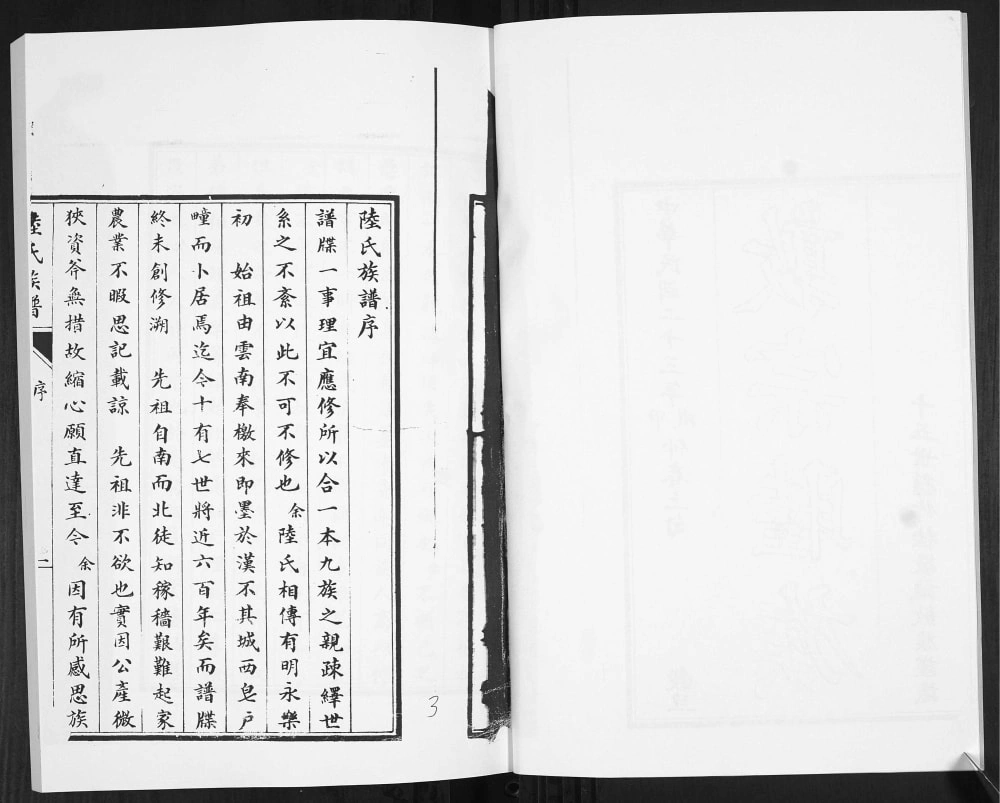 陸氏族譜序
譜牒一事理宜應修所以合一本九族之親疎繹世
系之不紊以此不可不修也余陸氏相傳有明永樂
初　始祖由雲南奉檄來即墨於漢不其城西皂戶
疃而小居焉迄今十有七世將近六百年矣而譜牒
終未創修溯　先祖自南而北徒知稼穡艱難起家
農業不暇思記載諒　先祖非不欲也實因公產微
狹資斧無措故縮心願直達至今余因有所感思族
陸氏族譜　序　二
3